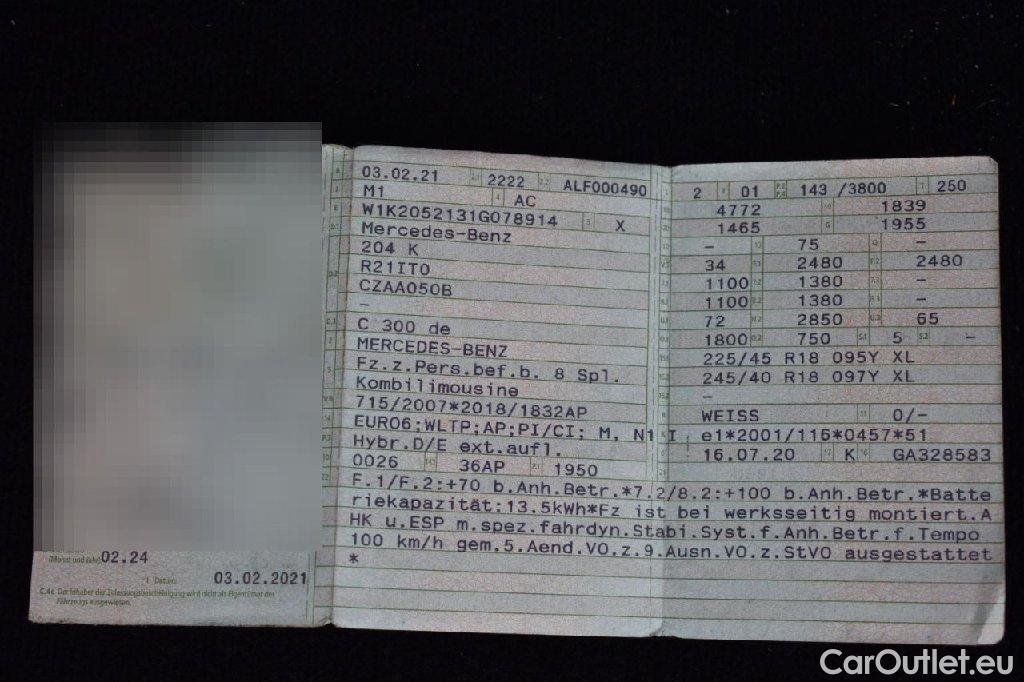 02.24
03.02.2021
C.4c Der Inhaber der Zulassungsbescheinigung wird nicht als Eigentümer des
Fahrzeugs ausgewiesen.
03.02.21 2222 ALF000490
M1 AC
W1K2052131G078914 X
Mercedes-Benz
204 K
R21IT0
CZAA050B
–
C 300 de
MERCEDES-BENZ
Fz.z.Pers.bef.b. 8 Spl.
Kombilimousine
715/2007*2018/1832AP
EURO6;WLTP;AP;PI/CI; M, N1 I
Hybr.D/E ext.aufl.
0026 36AP 1950
2 01 143 /3800 250
4772 1839
1465 1955
– 75 –
34 2480 2480
1100 1380 –
1100 1380 –
72 2850 65
1800 750 5 –
225/45 R18 095Y XL
245/40 R18 097Y XL
–
WEISS 0/–
e1*2001/116*0457*51
16.07.20 K GA328583
F.1/F.2:+70 b.Anh.Betr.*7.2/8.2:+100 b.Anh.Betr.*Batte
riekapazität:13.5kWh*Fz ist bei werksseitig montiert.A
HK u.ESP m.spez.fahrdyn.Stabi.Syst.f.Anh.Betr.f.Tempo
100 km/h gem.5.Aend.VO.z.9.Ausn.VO.z.StVO ausgestattet
*
CarOutlet.eu